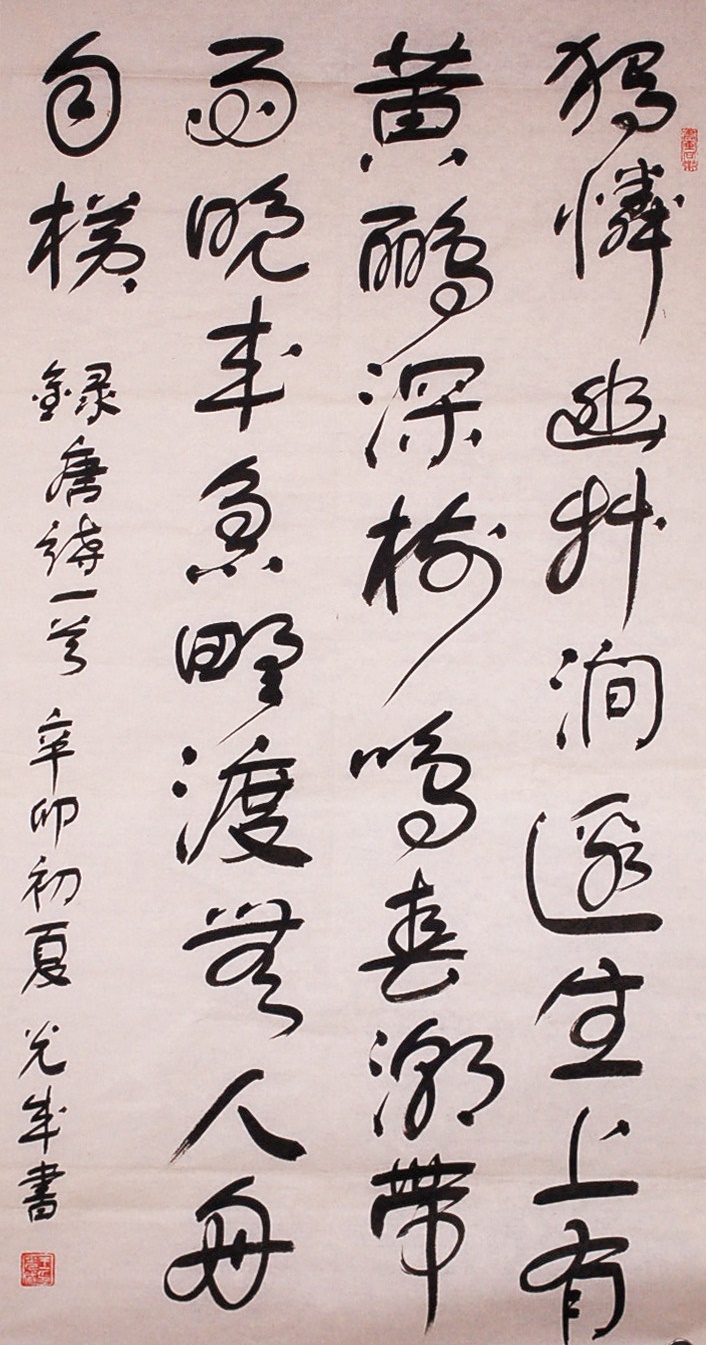 獨憐幽艸澗邊生上有
黄鸝深樹鳴春潮帶
雨晚来急野渡無人舟
自横
録唐詩一首 辛卯初夏 光成書